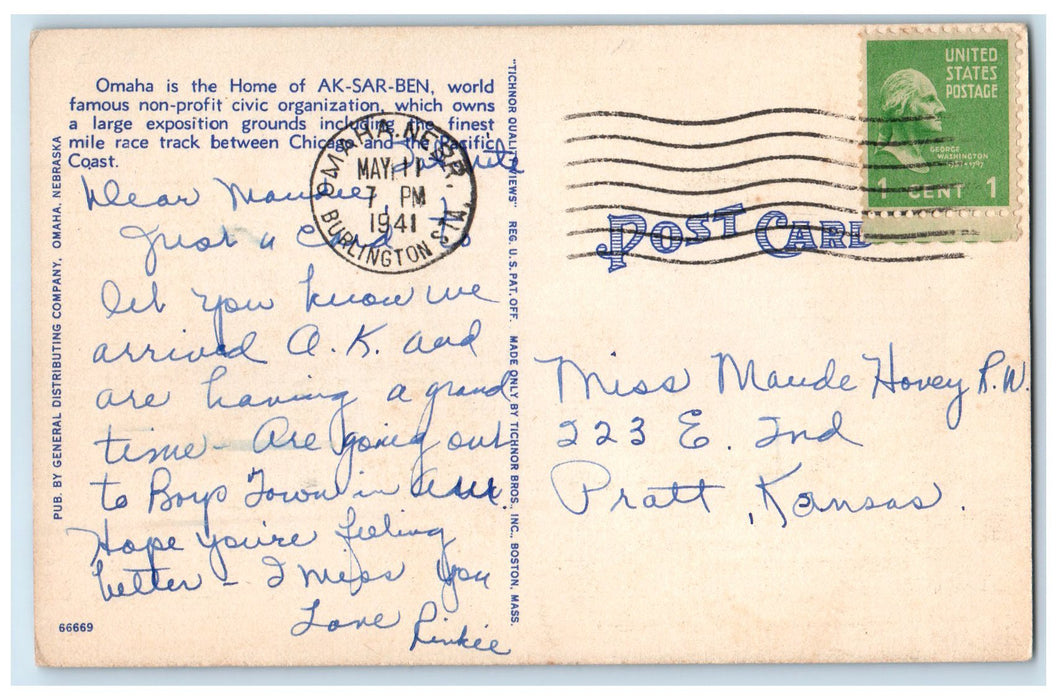 Omaha is the Home of AK-SAR-BEN, world
famous non-profit civic organization, which owns
a large exposition grounds including the finest
mile race track between Chicago and the Pacific
Coast.
OMAHA, NEBR.
MAY 11
7 PM
1941
BURLINGTON STA.
Dear Maude,
Just a card to
let you know we
arrived O.K. and
are having a grand
time - Are going out
to Boys Town in
Hope you're feeling
better - I miss you
Love
66669
PUB. BY GENERAL DISTRIBUTING COMPANY, OMAHA, NEBRASKA
"TICHNOR QUALITY VIEWS" REG. U.S. PAT. OFF. MADE ONLY BY TICHNOR BROS., INC., BOSTON, MASS.
UNITED
STATES
POSTAGE
GEORGE
WASHINGTON
1789-1797
1 CENT 1
POST CARD
Miss Maude Hovey R.N.
223 E. 2nd
Pratt, Kansas.